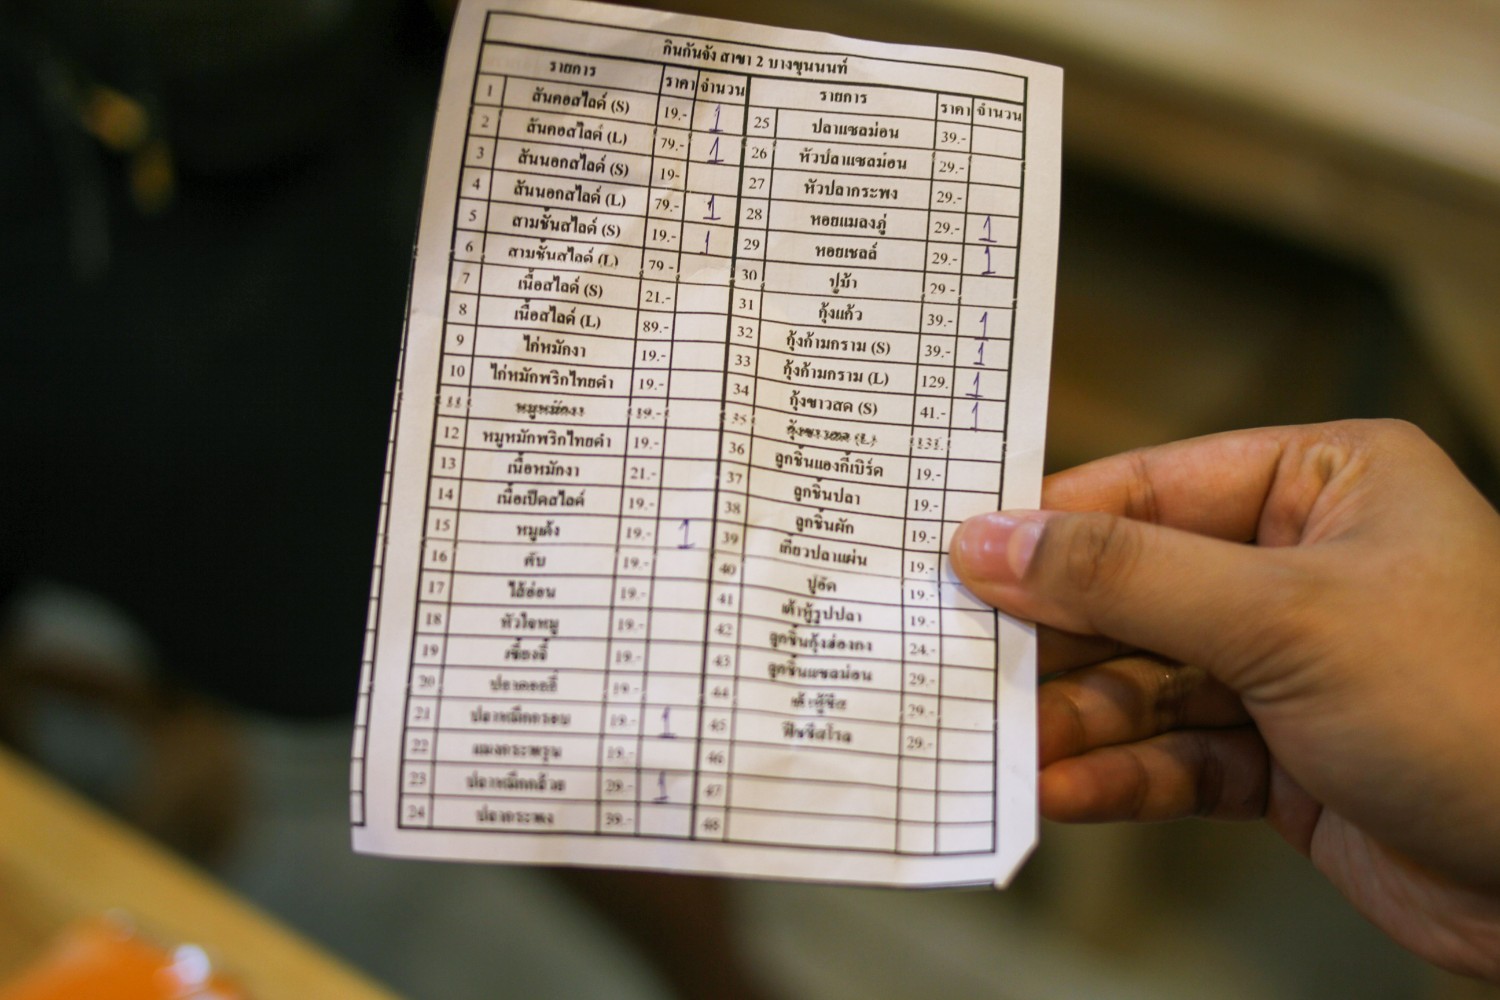 กินกันจัง สาขา 2 บางขุนนนท์
รายการ ราคา จำนวน รายการ ราคา จำนวน
1 สันคอสไลด์ (S) 19.- 1 25 ปลาแซลม่อน 39.-
2 สันคอสไลด์ (L) 79.- 1 26 หัวปลาแซลม่อน 29.-
3 สันนอกสไลด์ (S) 19- 27 หัวปลากระพง 29.-
4 สันนอกสไลด์ (L) 79.- 1 28 หอยแมลงภู่ 29.- 1
5 สามชั้นสไลด์ (S) 19.- 1 29 หอยเชลล์ 29.- 1
6 สามชั้นสไลด์ (L) 79 - 30 ปูม้า 29 -
7 เนื้อสไลด์ (S) 21.- 31 กุ้งแก้ว 39.- 1
8 เนื้อสไลด์ (L) 89.- 32 กุ้งก้ามกราม (S) 39.- 1
9 ไก่หมักงา 19.- 33 กุ้งก้ามกราม (L) 129. 1
10 ไก่หมักพริกไทยดำ 19.- 34 กุ้งขาวสด (S) 41.- 1
11 หมูหมักงา 19.- 35 กุ้งขาวสด (L) 131.
12 หมูหมักพริกไทยดำ 19.- 36 ลูกชิ้นแองกี้เบิร์ด 19.-
13 เนื้อหมักงา 21.- 37 ลูกชิ้นปลา 19.-
14 เนื้อเป็ดสไลด์ 19.- 38 ลูกชิ้นผัก 19.-
15 หมูเด้ง 19.- 1 39 เกี๊ยวปลาแผ่น 19.-
16 ตับ 19.- 40 ปูอัด 19.-
17 ไส้อ่อน 19.- 41 เต้าหู้รูปปลา 19.-
18 หัวใจหมู 19.- 42 ลูกชิ้นกุ้งฮ่องกง 24.-
19 เซี่ยงจี้ 19.- 43 ลูกชิ้นแซลม่อน 29.-
20 ปลาดอลลี่ 19.- 44 เต้าหู้ชีส 29.-
21 ปลาหมึกกรอบ 19.- 1 45 ฟิชชีสโรล 29.-
22 แมงกะพรุน 19.- 46
23 ปลาหมึกกล้วย 29.- 1 47
24 ปลากระพง 39.- 48